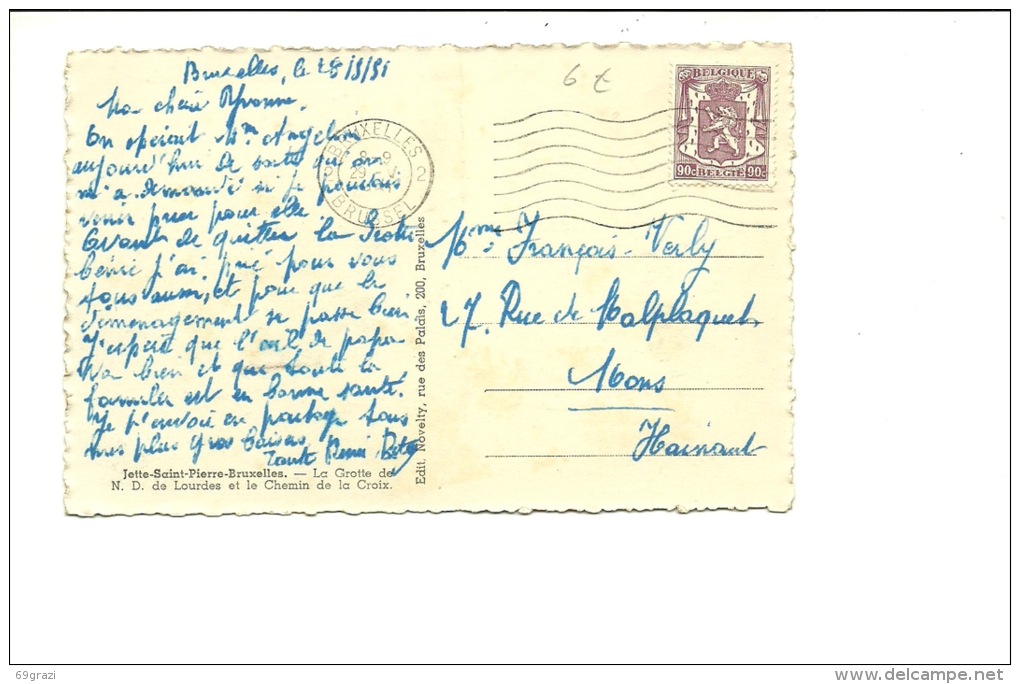 Bruxelles, le 28/5/51
Ma chère Yvonne.
On opérait Mme Angeline
aujourd'hui de sorte qu'on
m'a demandé si je pourrais
venir prier pour elle
Avant de quitter la Grotte
bénie j'ai prié pour vous
tous aussi, et pour que le
déménagement se passe bien
J'espère que l'œil de papa
va bien et que toute la
famille est en bonne santé.
Je t'envoie en partage tous
mes plus gros baisers
Tante
Jette-Saint-Pierre-Bruxelles. — La Grotte de
N. D. de Lourdes et le Chemin de la Croix.
Edit. Novelty, rue des Palais, 200, Bruxelles
BRUXELLES 2
BRUSSEL 2
6 €
BELGIQUE
90c BELGIË 90c
Mme François-Verly
27, Rue de Malplaquet
Mons
Hainaut
69grazi
www.delcampe.net